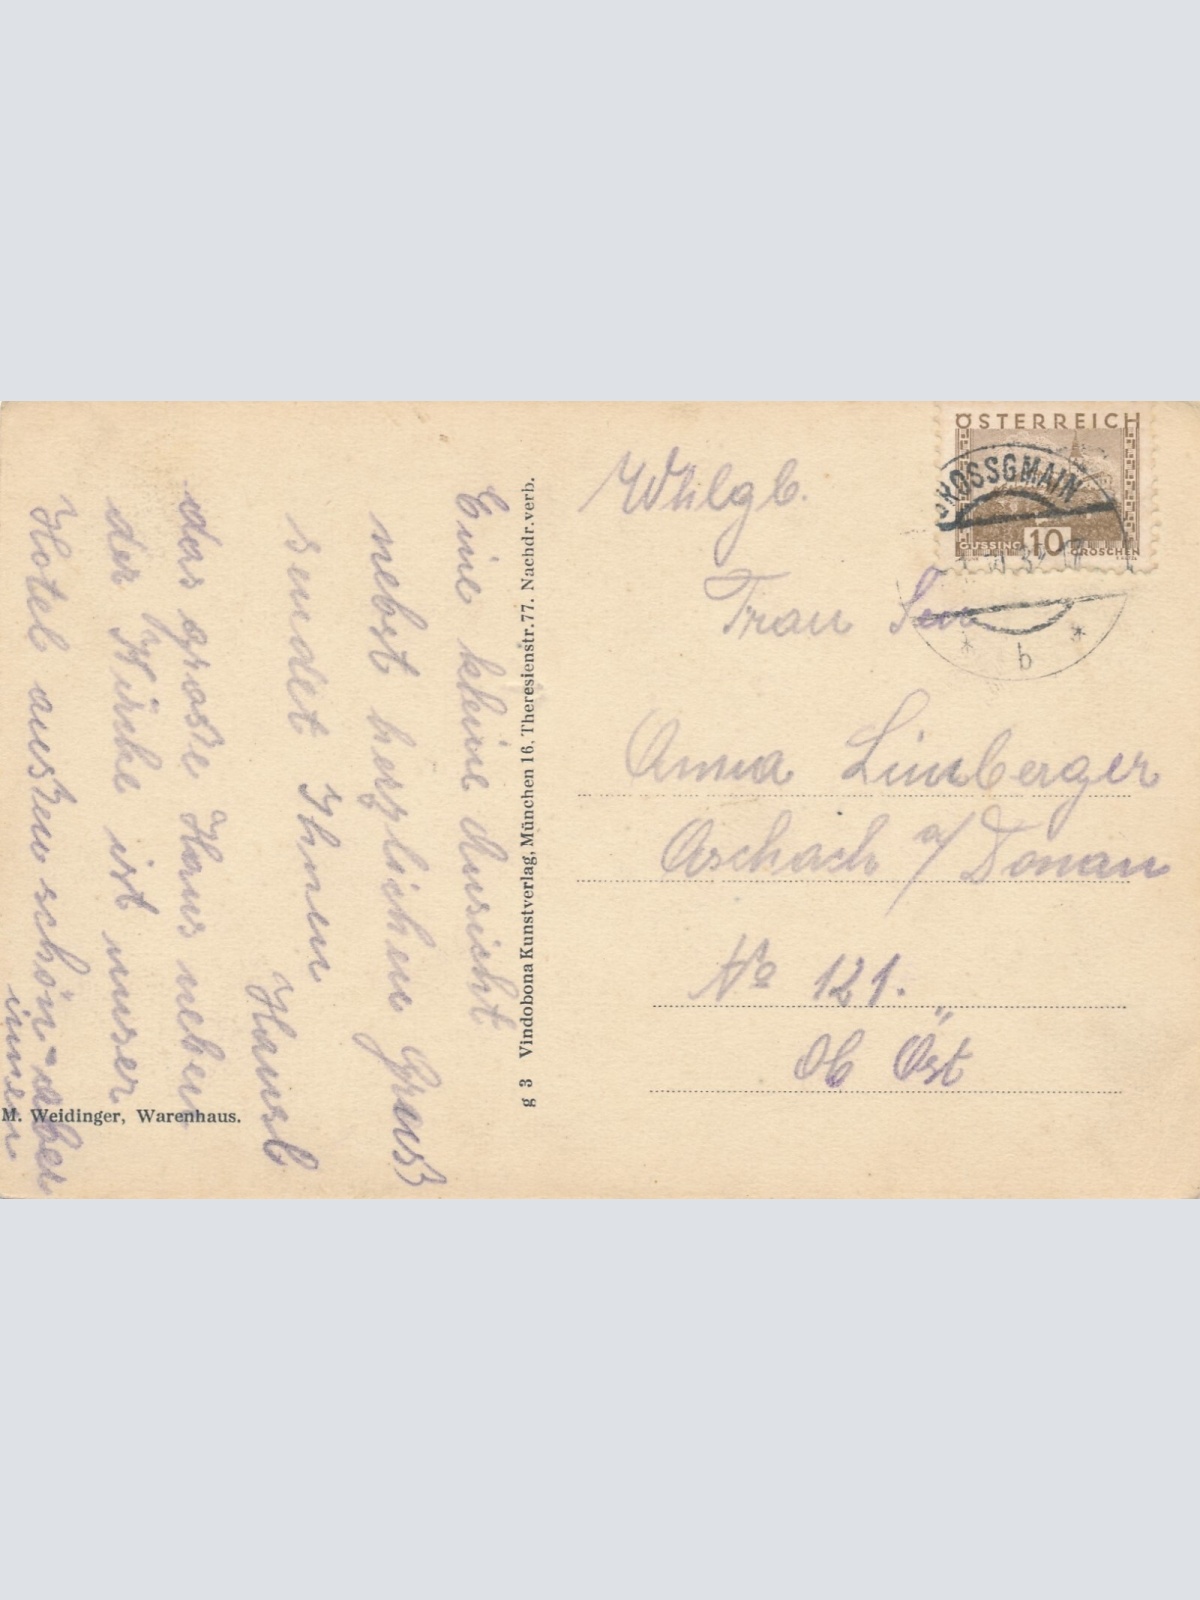 Eine kleine Ansicht
nebst herzlichen Gruß
sendet Ihnen
Hansl
das grosse Haus neben
der Kirche ist unser
Hotel außen schön - aber
innen
M. Weidinger, Warenhaus.
g 3 Vindobona Kunstverlag, München 16, Theresienstr. 77. Nachdr. verb.
ÖSTERREICH
GÜSSING 10 GROSCHEN
GROSSGMAIN
* b *
Whlgb.
Frau
Anna Limberger
Aschach a/ Donau
No 121.
Ob Öst